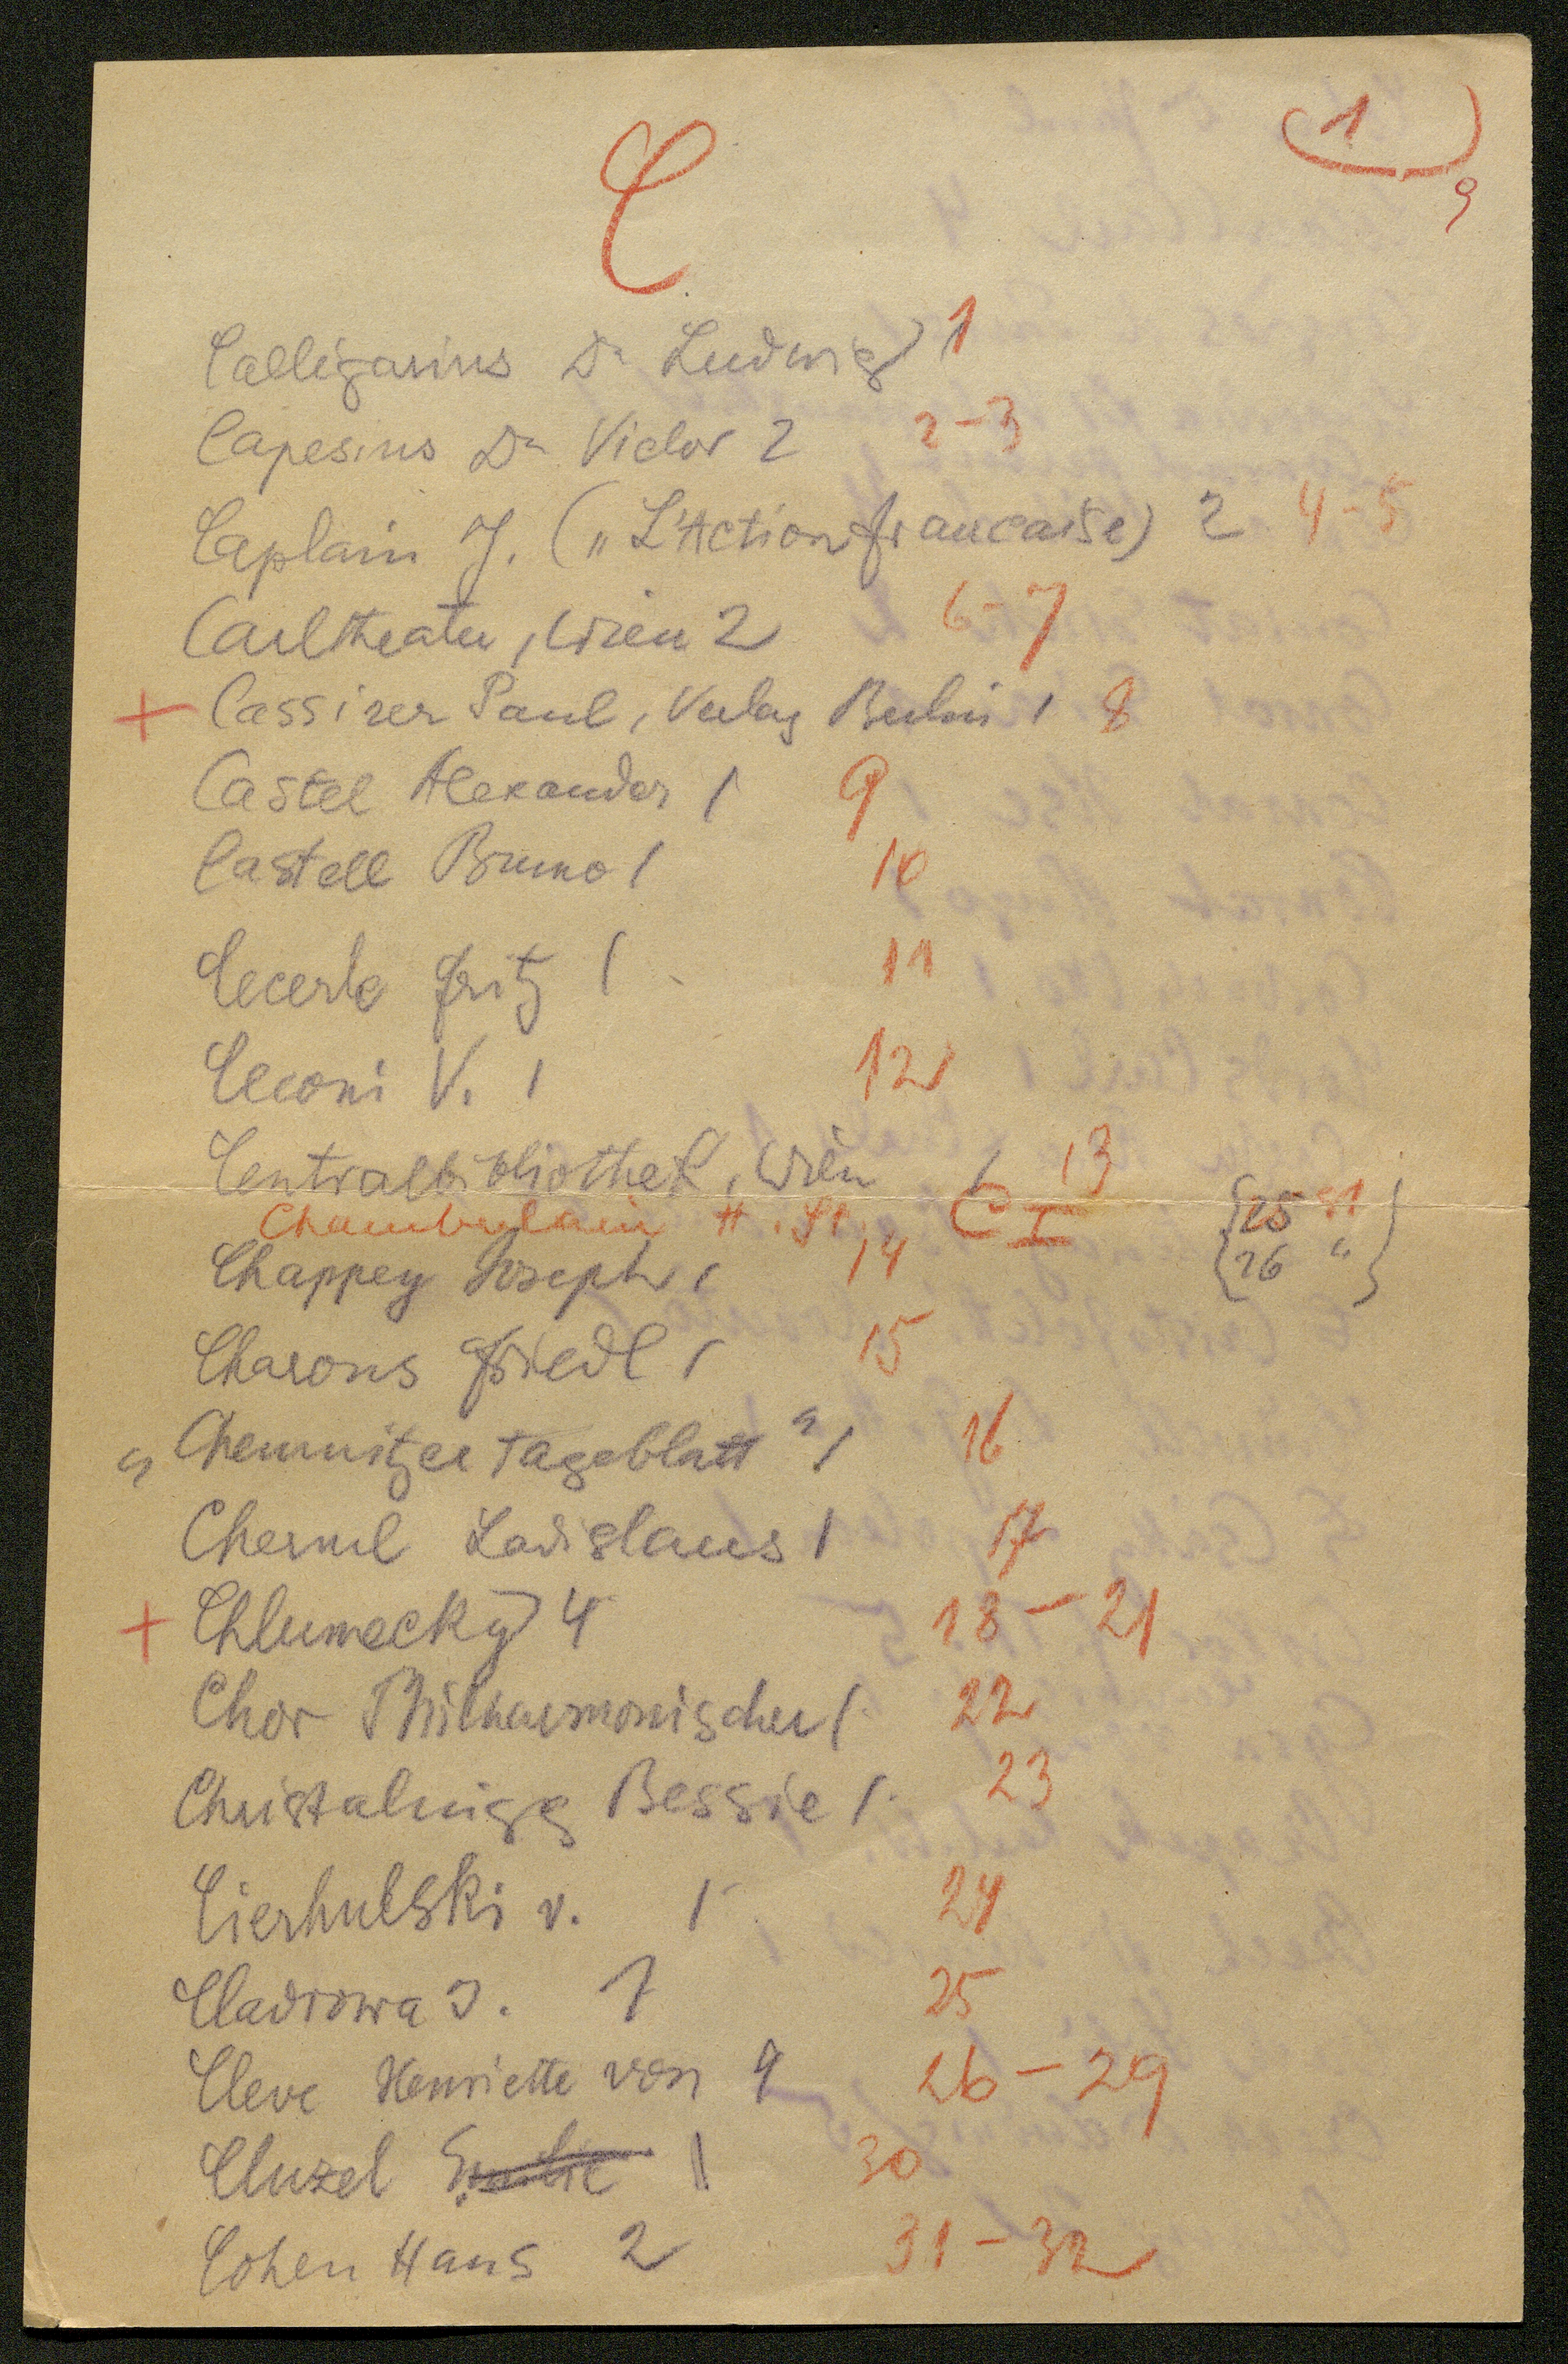 1
9
C
Calligarius Dr Ludwig 1 1
Capesius Dr Victor 2 2-3
Caplain J. („L'Action francaise) 2 4-5
Carltheater, Wien 2 6-7
+ Cassirer Paul, Verlag Berlin 1 8
Castel Alexander 1 9
Castell Bruno 1 10
Cecerle Fritz 1 11
Ceconi V. 1 12
Centralbibliothek, Wien 1 13
Chamberlain H. St. C I {25 51}
Chappey Joseph 1 14 {26 "}
Charons Friedl 1 15
„Chemnitzer Tageblatt" 1 16
Chernel Ladislaus 1 17
+ Chlumecky 4 18-21
Chor Philharmonischer 1 22
Christalnigg Bessie 1 23
Cierhulski v. 1 24
Cladrowa J. 1 25
Cleve Henriette von 4 26-29
Cluzel 1 30
Cohen Hans 2 31-32